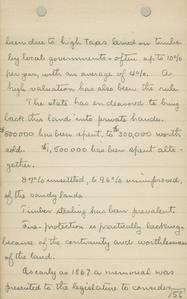 been due to high taxes levied on timber
by local governments - often up to 10%
per year, with an average of 4%. A
high valuation has also been the rule.
The state has endeavored to bring
back this land into private hands.
$800000 has been spent, to $300,000 worth
sold. $1,500 000 has been spent alto-
gether.
87% unsettled, to 96% unimproved,
of the sandy lands.
Timber stealing has been prevalent.
Fire-protection is practically lacking,
because of the continuity and worthlessness
of the land.
As early as 1867 a memorial was
presented to the legislature to consider